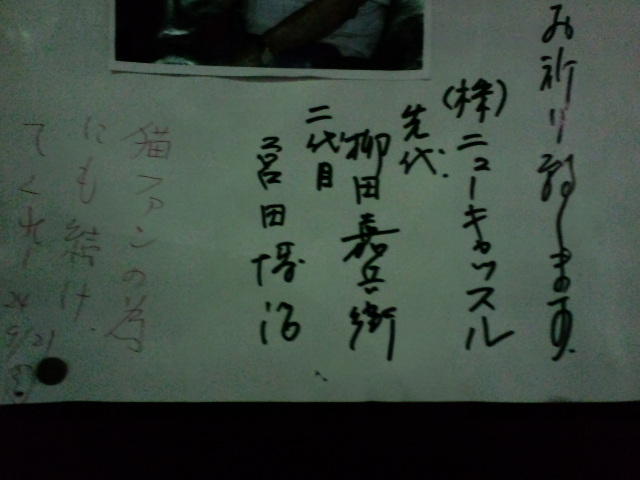 お祈り致します。
(株)ニューキャッスル
先代.
柳田嘉兵衛
二代目
宮田博治
猫ファンの為
にも続け
てくれー
24
9/21